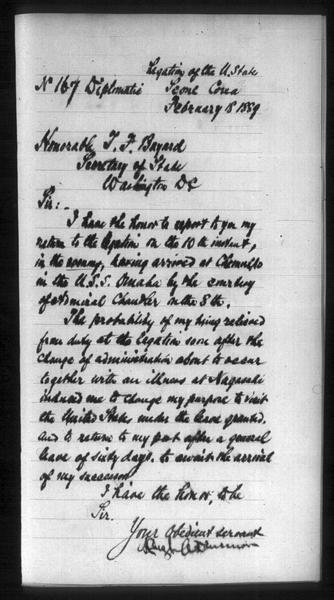 Legation of the U. State
No 167 Diplomatic Seoul Corea
February 18 1889
Honorable T. F. Bayard
Secretary of State
Washington DC
Sir:
I have the honor to report to you my
return to the Legation on the 10th instant,
in the evening, having arrived at Chemulpo
in the U.S.S. Omaha by the courtesy
of Admiral Chandler on the 8th.
The probability of my being relieved
from duty at the Legation soon after the
change of administration about to occur
together with an illness at Nagasaki
induced me to change my purpose to visit
the United States under the leave granted.
And to return to my post after a general
leave of sixty days. to await the arrival
of my successor
I have the honor, to be
Sir.
Your Obedient servant